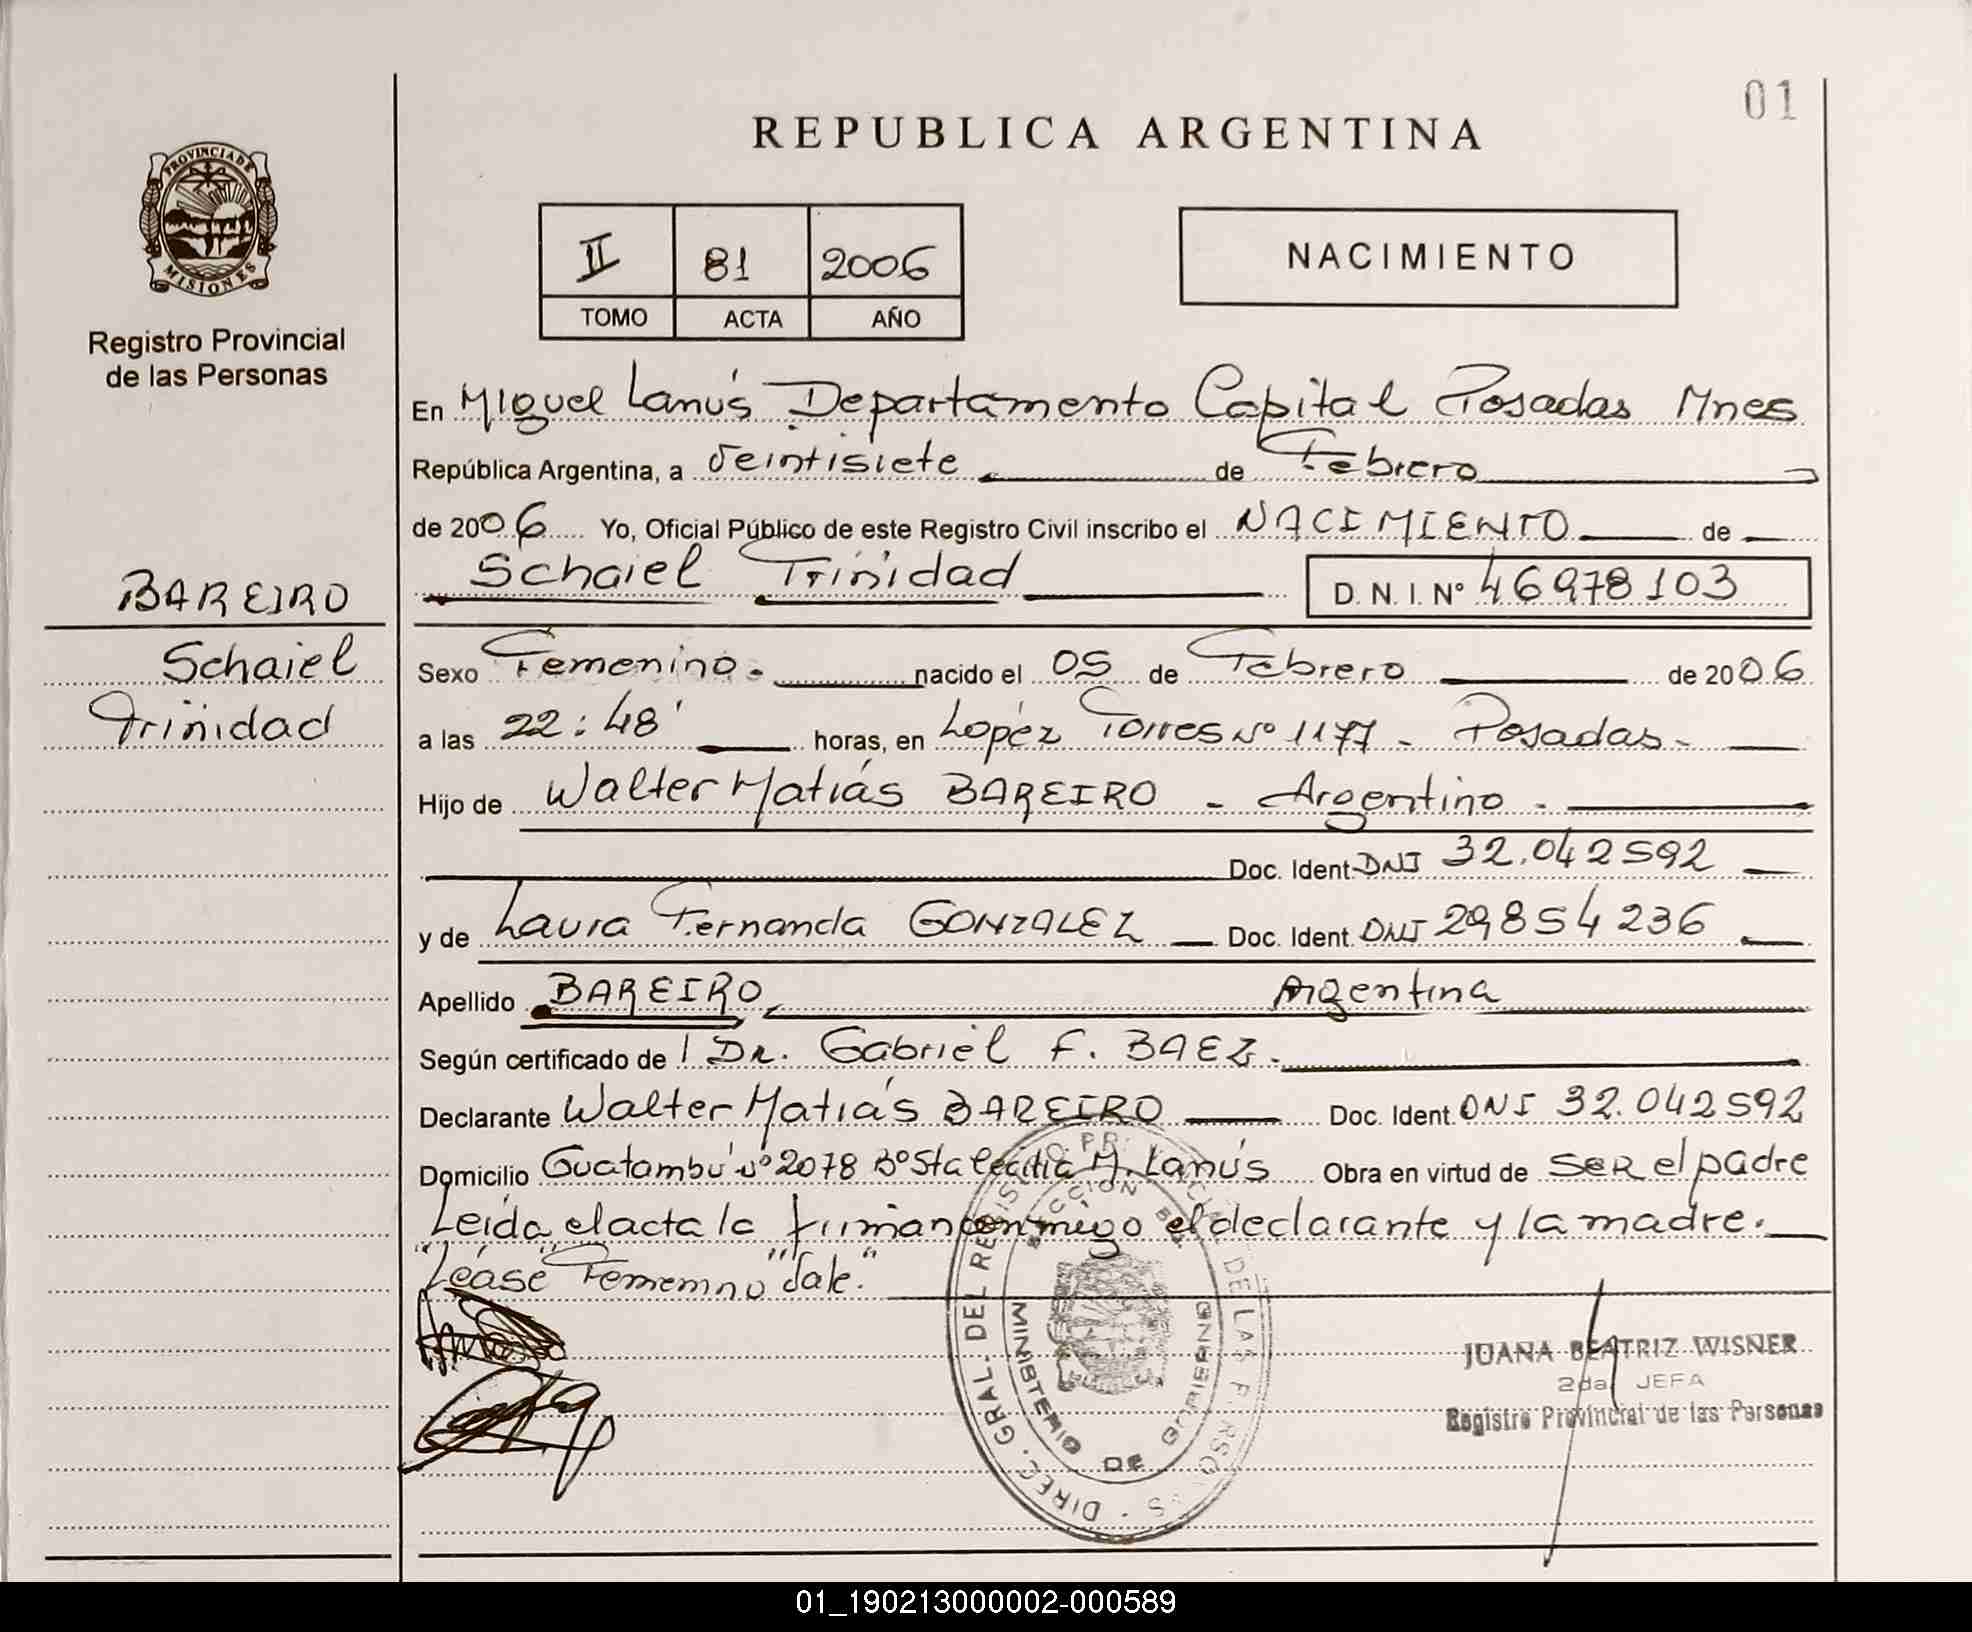 01
REPUBLICA ARGENTINA
PROVINCIA DE
MISIONES
Registro Provincial
de las Personas
II 81 2006
TOMO ACTA AÑO
NACIMIENTO
En Miguel Lanús Departamento Capital Posadas Mnes
República Argentina, a Veintisiete de Febrero
de 2006 Yo, Oficial Público de este Registro Civil inscribo el NACIMIENTO de
Schaiel Trinidad D.N.I.Nº 46978103
BAREIRO
Schaiel
Trinidad
Sexo Femenino. nacido el 05 de Febrero de 2006
a las 22:48' horas, en López Torres Nº 1177 - Posadas -
Hijo de Walter Matiás BAREIRO - Argentino -
Doc. Ident DNI 32.042592
y de Laura Fernanda GONZALEZ Doc. Ident. DNI 29854236
Apellido BAREIRO, Argentina
Según certificado de Dr. Gabriel F. BAEZ.
Declarante Walter Matiás BAREIRO Doc. Ident. DNI 32.042592
Domicilio Guatambú Nº 2078 Bº Sta Cecilia M. Lanús Obra en virtud de SER el padre
Leída el acta la firman conmigo el declarante y la madre.
"Léase" Femenino "Vale."
DIREC. GRAL. DEL REGISTRO PR DE LAS
MINISTERIO DE GOBIERNO
JUANA BEATRIZ WISNER
2da. JEFA
Registro Provincial de las Personas
01_190213000002-000589